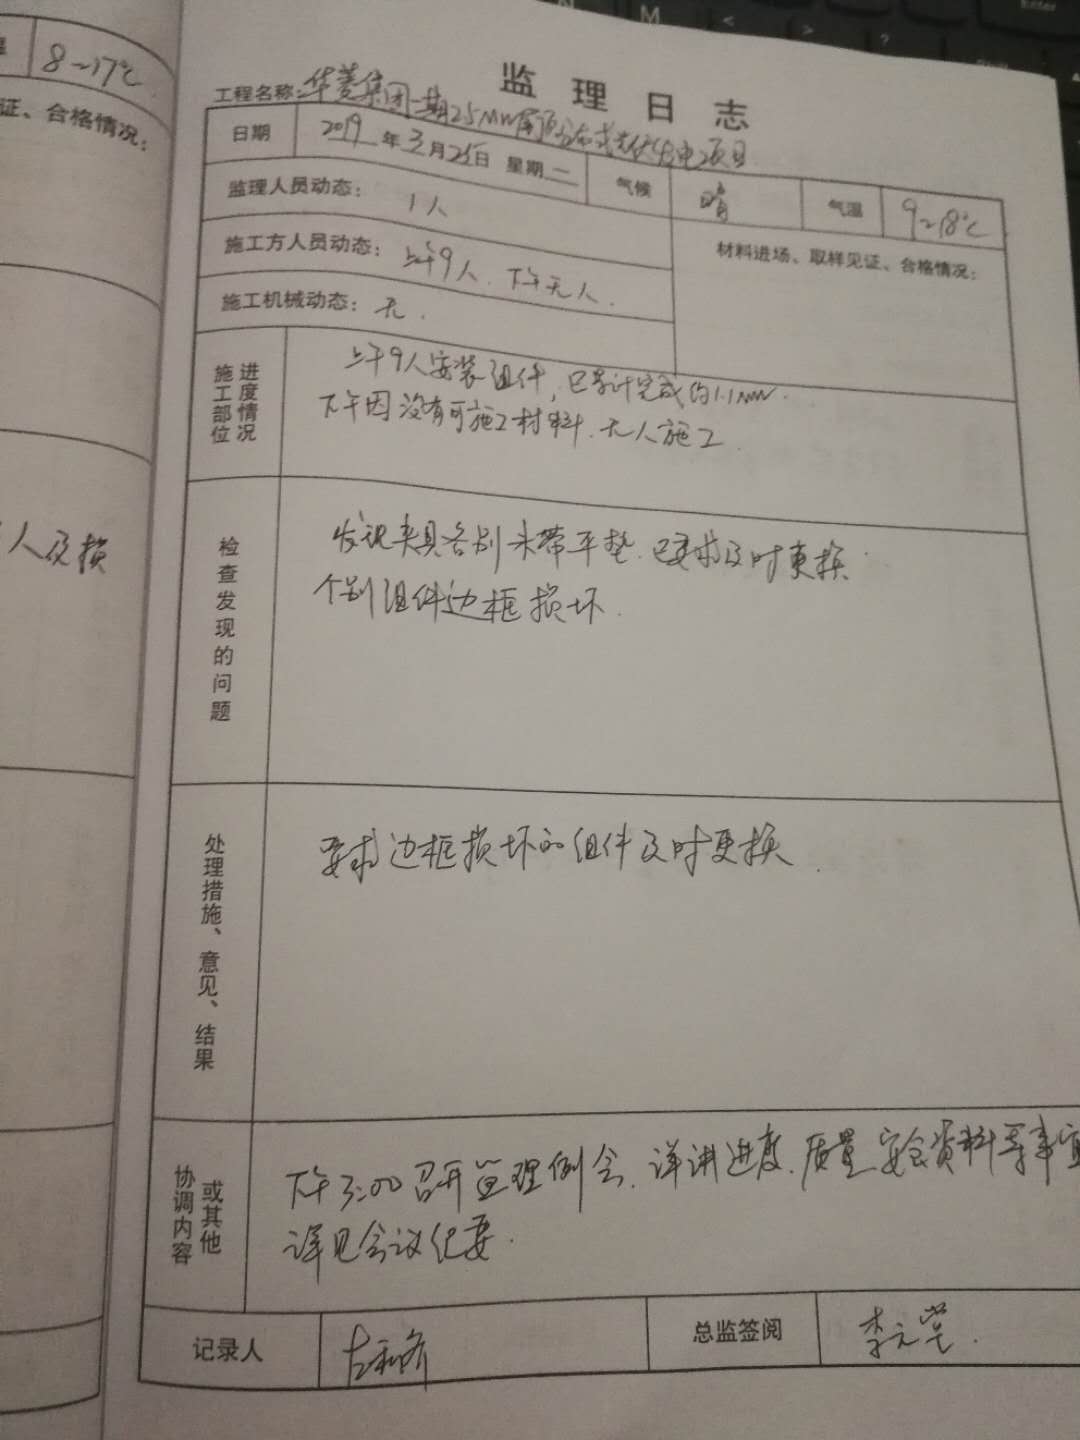 8~17℃
证、合格情况：
人及损
监理日志
工程名称：华菱集团一期25MW屋顶分布式光伏发电项目
日期 2019年3月26日 星期二 气候 晴 气温 9~18℃
监理人员动态： 1人
材料进场、取样见证、合格情况：
施工方人员动态： 上午9人、下午无人.
施工机械动态： 无.
施工部位 进度情况
上午9人安装组件，已累计完成约1.1MW.
下午因没有可施工材料、无人施工.
检查发现的问题
发现夹具各别未带平垫、已要求及时更换.
个别组件边框损坏.
处理措施、意见、结果
要求边框损坏的组件及时更换.
协调内容 或其他
下午3:00召开监理例会、详讲进度、质量、安全资料等事宜
详见会议纪要.
记录人 总监签阅